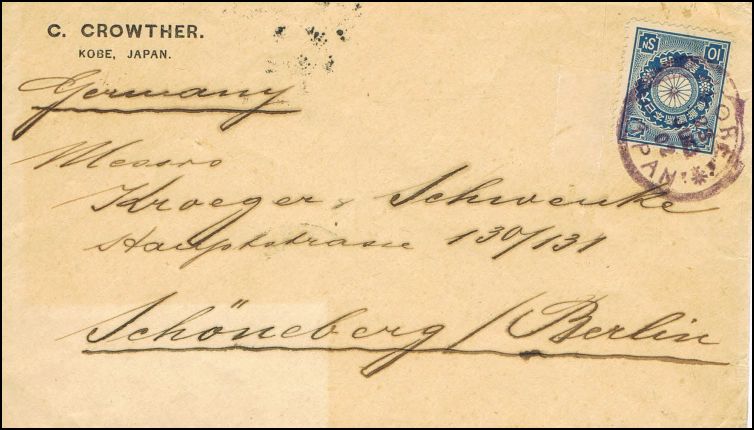 C. CROWTHER.
KOBE, JAPAN.
Germany
Messrs
Kroeger, Schwenke
Hauptstrasse 130/131
Schöneberg / Berlin
10 SN.
KOBE
JAPAN